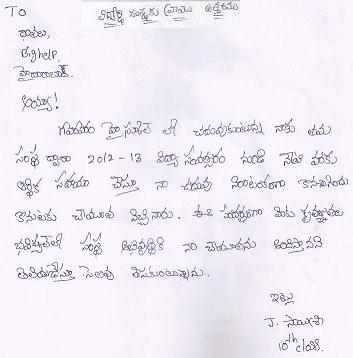 To
విద్యార్థి సంస్థకు వ్రాయు ఉత్తరము
దాతలు,
Big help,
హైదరాబాద్.
అయ్యా!
హైస్కూల్ లో చదువుకుంటున్న నాకు తమ
సంస్థ ద్వారా 2012-13 విద్యా సంవత్సరం నుండి నేటి వరకు
ఆర్థిక సహాయం చేస్తూ నా చదువు నిరాటంకంగా కొనసాగించు
కొనుటకు చేయూత నిచ్చినారు. ఈ సందర్భంగా మీకు కృతజ్ఞతలు
భవిష్యత్‌లో సంస్థ అభివృద్ధికి నా చేయూతను అందిస్తానని
తెలియజేస్తూ సెలవు తీసుకుంటున్నాను.
ఇట్లు
J.
10th class.